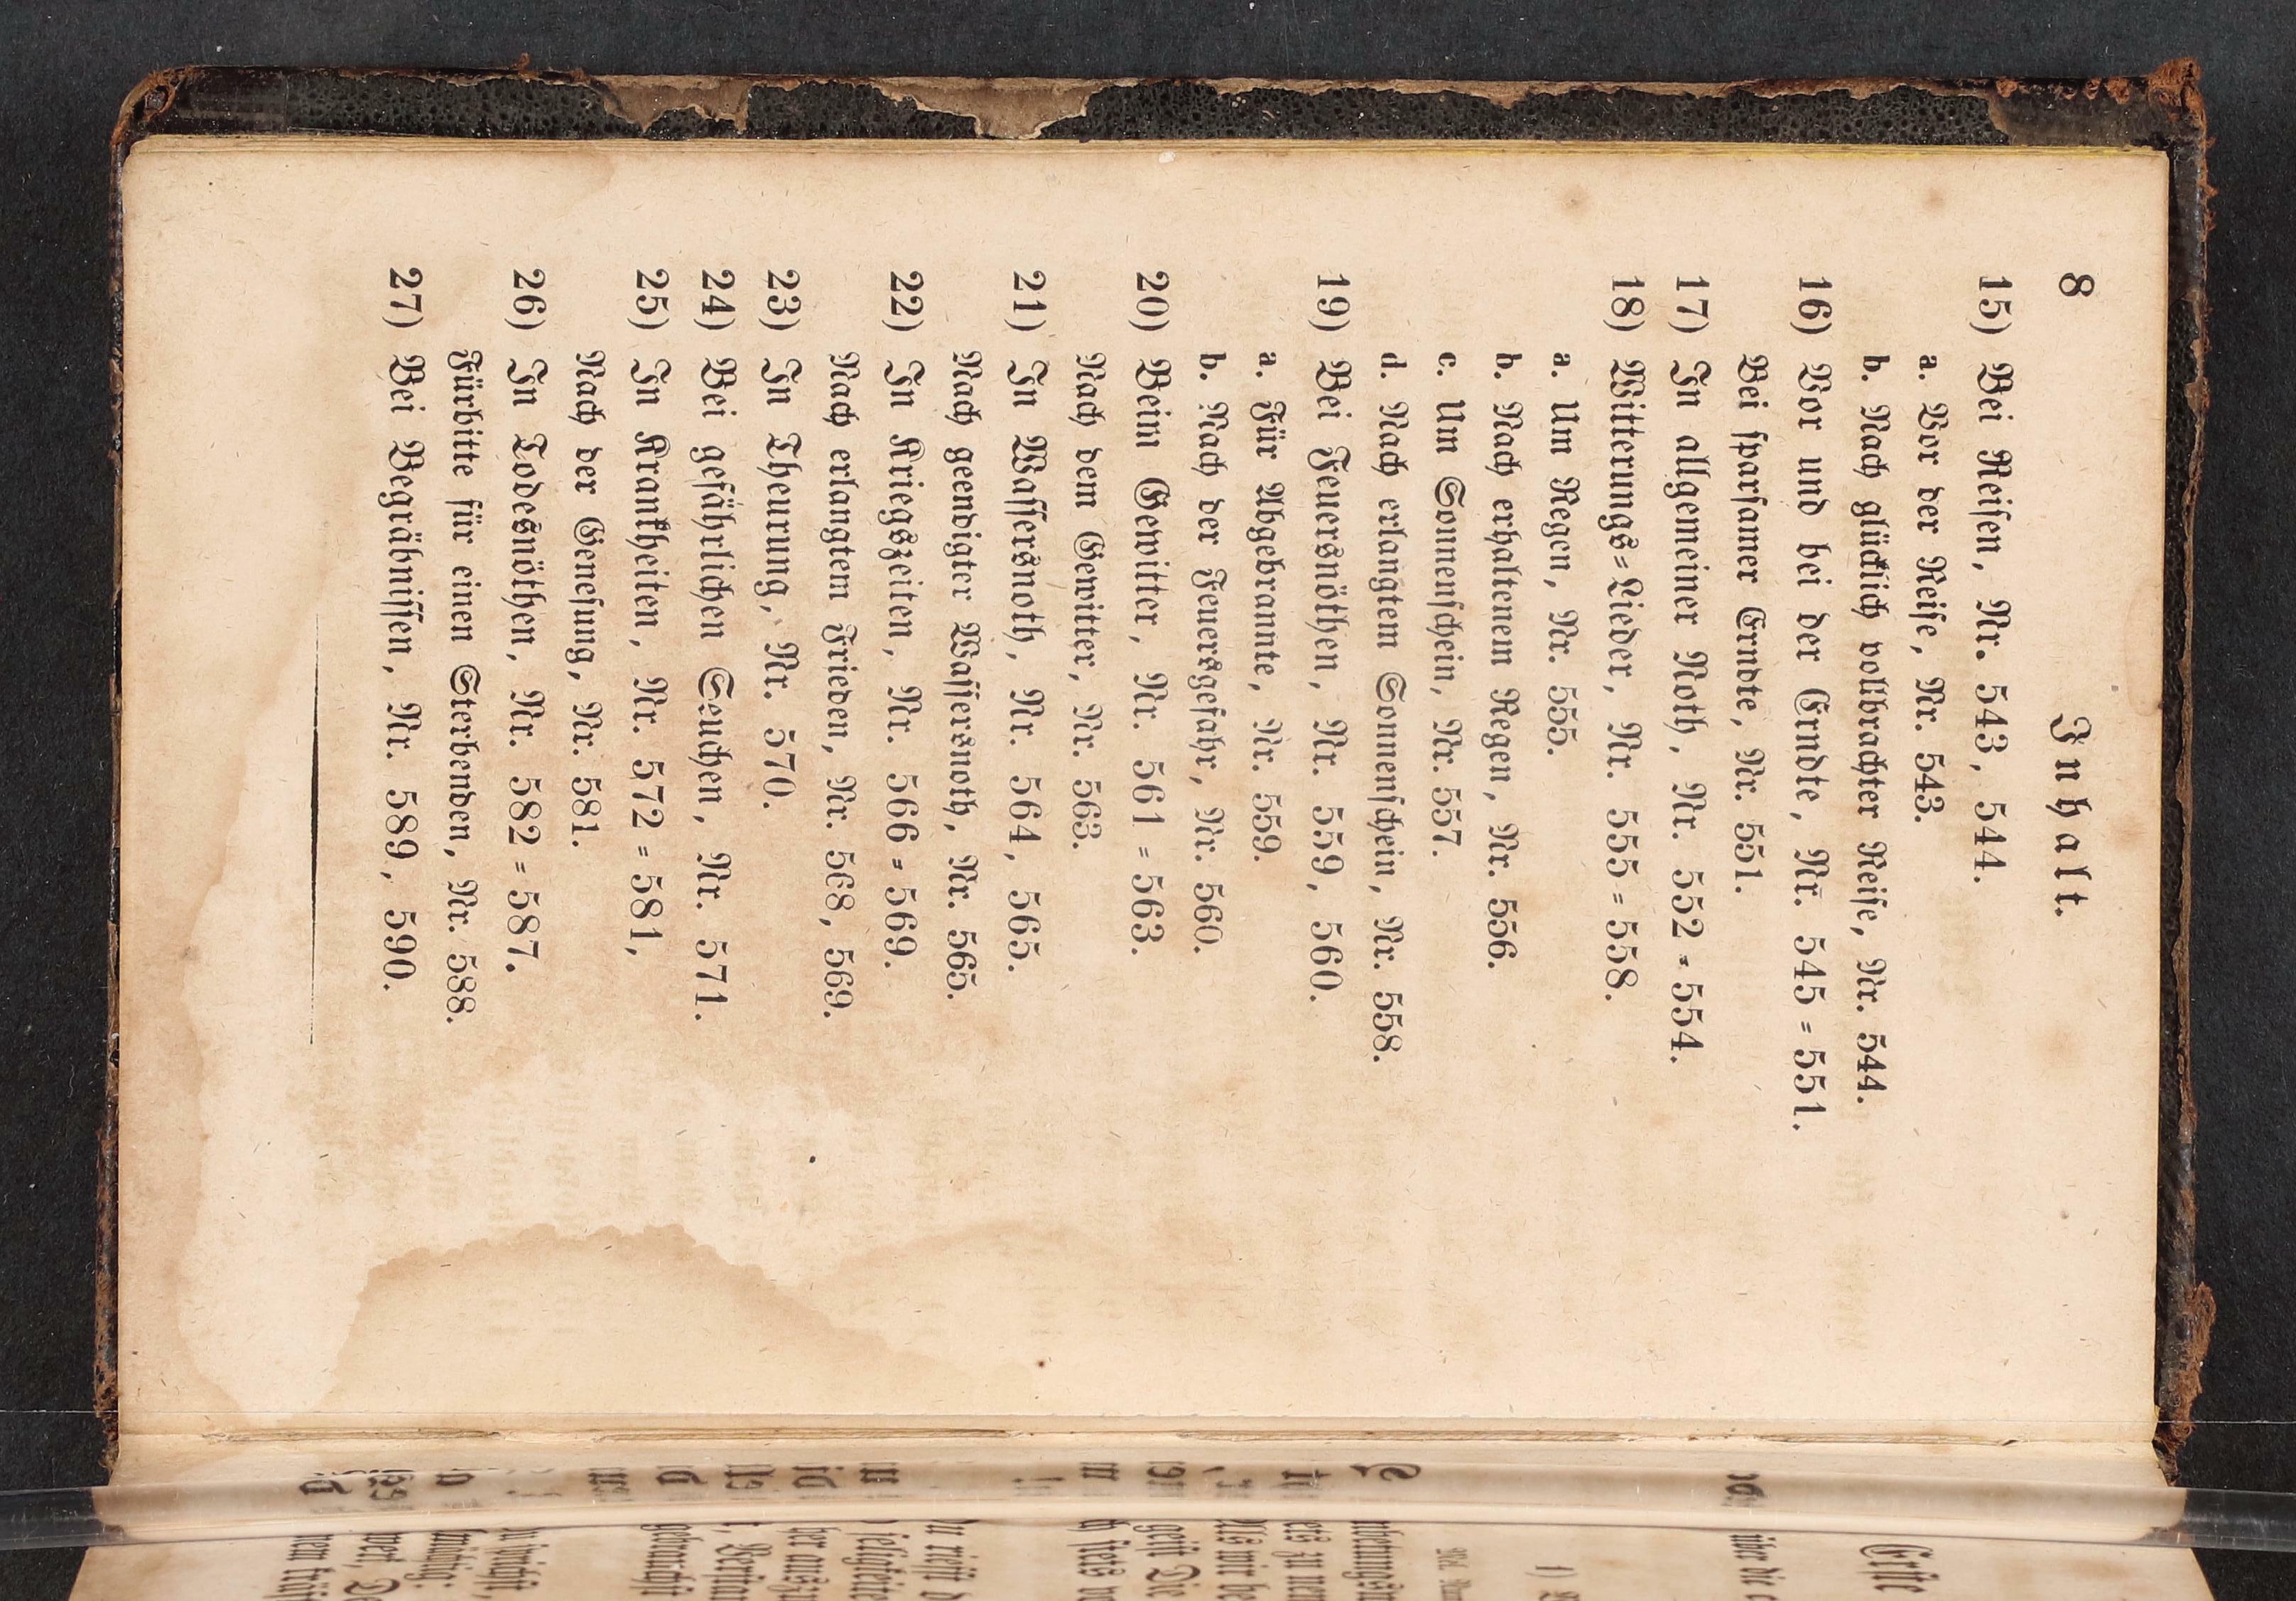 8
Inhalt.
15) Bei Reisen, Nr. 543, 544.
a. Vor der Reise, Nr. 543.
b. Nach glücklich vollbrachter Reise, Nr. 544.
16) Vor und bei der Erndte, Nr. 545=551.
Bei sparsamer Erndte, Nr. 551.
17) In allgemeiner Noth, Nr. 552=554.
18) Witterungs=Lieder, Nr. 555=558.
a. Um Regen, Nr. 555.
b. Nach erhaltenem Regen, Nr. 556.
c. Um Sonnenschein, Nr. 557.
d. Nach erlangtem Sonnenschein, Nr. 558.
19) Bei Feuersnöthen, Nr. 559, 560.
a. Für Abgebrannte, Nr. 559.
b. Nach der Feuersgefahr, Nr. 560.
20) Beim Gewitter, Nr. 561=563.
Nach dem Gewitter, Nr. 563.
21) In Wassersnoth, Nr. 564, 565.
Nach geendigter Wassersnoth, Nr. 565.
22) In Kriegszeiten, Nr. 566=569.
Nach erlangtem Frieden, Nr. 568, 569.
23) In Theurung, Nr. 570.
24) Bei gefährlichen Seuchen, Nr. 571.
25) In Krankheiten, Nr. 572=581,
Nach der Genesung, Nr. 581.
26) In Todesnöthen, Nr. 582=587.
Fürbitte für einen Sterbenden, Nr. 588.
27) Bei Begräbnissen, Nr. 589, 590.
Erste
über die
1)
Mel.
gebracht